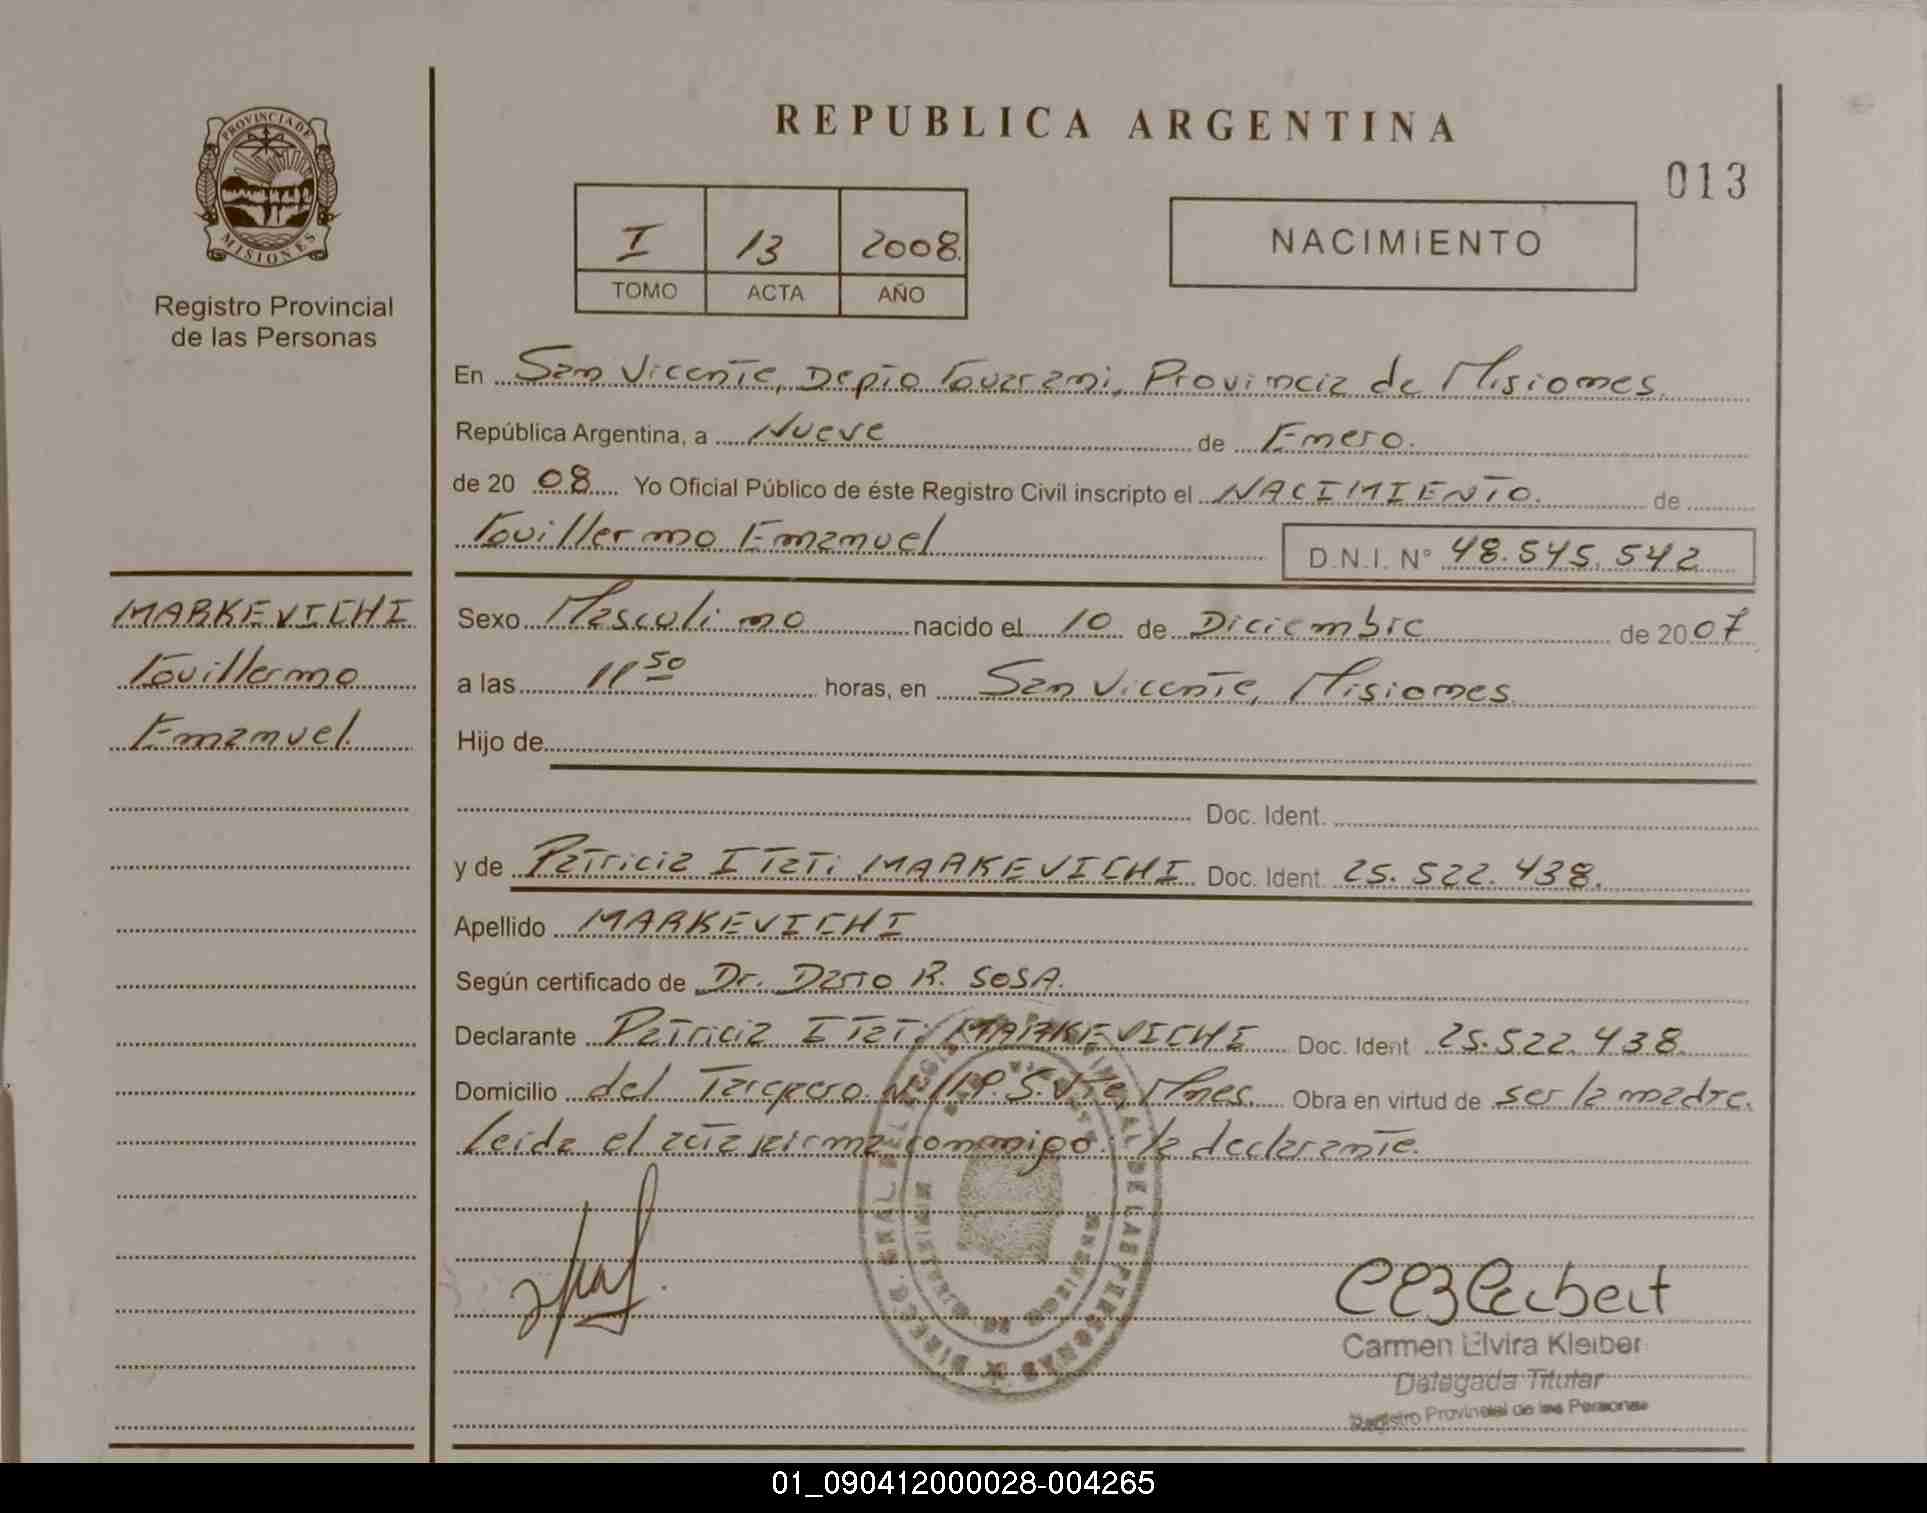 REPUBLICA ARGENTINA
013
PROVINCIA DE
MISIONES
Registro Provincial
de las Personas
I 13 2008.
TOMO ACTA AÑO
NACIMIENTO
En San Vicente, Depto Guarani, Provincia de Misiones.
República Argentina, a Nueve de Enero.
de 20 08 Yo Oficial Público de éste Registro Civil inscripto el NACIMIENTO. de
Guillermo Emanuel D.N.I. N° 48.545.542
MARKEVICHI
Guillermo
Emanuel.
Sexo Masculino nacido el 10 de Diciembre de 2007
a las 11 50 horas, en San Vicente, Misiones.
Hijo de
Doc. Ident.
y de Patricia Itati MARKEVICHI Doc. Ident. 25.522.438.
Apellido MARKEVICHI
Según certificado de Dr. Dario R. SOSA.
Declarante Patricia Itati MARKEVICHI Doc. Ident 25.522.438.
Domicilio del Tarepero N° 119. S. Vte, Mnes. Obra en virtud de ser la madre.
Leida el acta firma conmigo: la declarante.
DIREC. GRAL DEL REGIS PROVINCIAL DE LAS PERSONAS
Carmen Elvira Kleiber
Delegada Titular
Registro Provincial de las Personas
01_090412000028-004265